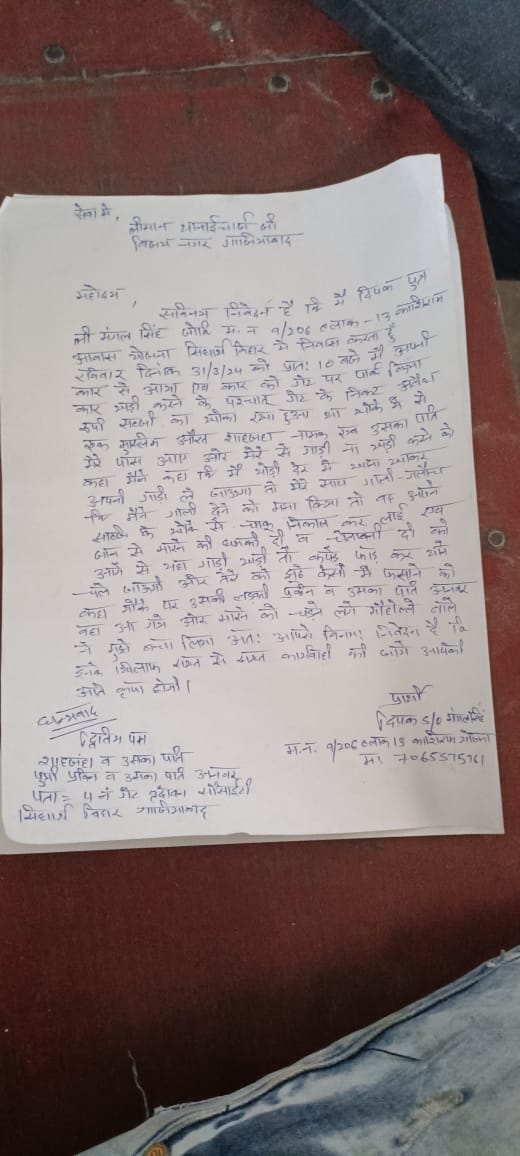 सेवा मे,
श्रीमान थानाईचार्ज जी
विजय नगर गाजियाबाद
महोदय,
सविनय निवेदन है कि मै दिपक पुत्र
श्री मंगल सिंह जोकि म. न 9/206 ब्लाक - 13 काशिराम
आवास योजना सिद्धार्थ विहार मे निवास करता है
रविवार दिनांक 31/3/24 को प्रातः 10 बजे मै अपनी
कार से आया एव कार को गेट पर पार्क किया
कार खडी करने के पश्चात् गेट के निकट अवैध
रुपी सब्जी का खोका रखा हुआ था खोके मे से
एक मुस्लिम औरत शाहजहा नामक एव उसका पति
मेरे पास आए और मेरे से गाडी ना खडी करने को
कहा मैने कहा कि मै थोडी देर मे खाना खाकर
अपनी गाडी ले जाऊगा तो मेरे साथ गाली-गलौच
कि मैने गाली देने को मना किया तो वह अपने
सब्जी के खोके से चाकू निकाल कर लाई एव
जान से मारने की धमकी दी व चेतावनी दी की
आगे से यहा गाडी खडी तो कपडे फाड कर थाने
चले जाऊगी और तेरे को झूठे केसो मे फसाने को
कहा मौके पर उसकी लडकी प्रवीन व उसका पति अनवर
वहा आ गये और मारने को चढने लगे मौहल्ले वालो
ने मुझे बचा लिया अतः आपसे विनम्र निवेदन है कि
इनके खिलाफ सख्त से सख्त कार्यवाही की जाये आपकी
अति कृपा होगी।
धन्यवाद
प्रार्थी
दिपक S/O मंगल सिंह
म.न. 9/206 ब्लाक 13 काशिराम योजना
मो 7065575761
द्वितीय पक्ष
शाहजहा व उसका पति
पुत्री प्रविन व उसका पति अनवर
पता = 4 नं गेट वृंदावन सोसाईटी
सिद्धार्थ विहार गाजियाबाद